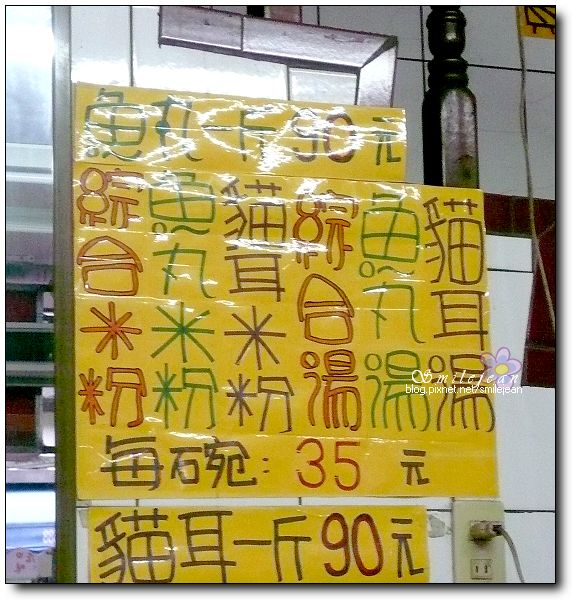 魚丸一斤90元
貓耳湯
魚丸湯
綜合湯
貓耳米粉
魚丸米粉
綜合米粉
每碗：35元
貓耳一斤90元
Smilejean
blog.pixnet.net/smilejean